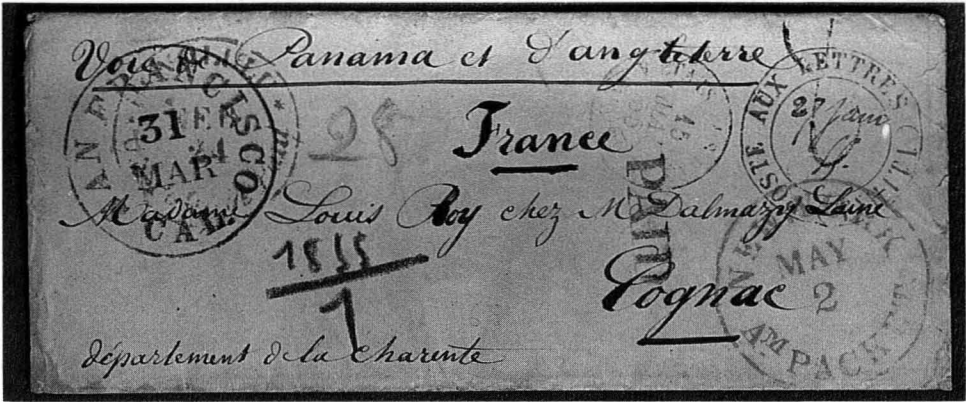 Voie de Panama et d'angleterre
SAN FRANCISCO
31
MAR
CAL.
28
France
PAID
POSTE AUX LETTRES
27 Janv
Madame Louis Roy chez M. Dalmazy Lainé
1855
1
Cognac
NEW YORK
MAY
2
AM PACK
département de la charente